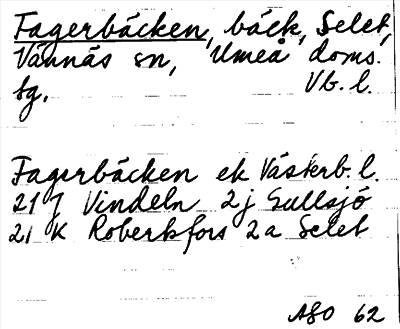 Fagerbäcken, bäck, Selet,
Vännäs sn, Umeå doms.
tg. Vb. l.
Fagerbäcken ek Västerb. l.
21 J Vindeln 2j Gullsjö
21 K Robertsfors 2a Selet
ASO 62